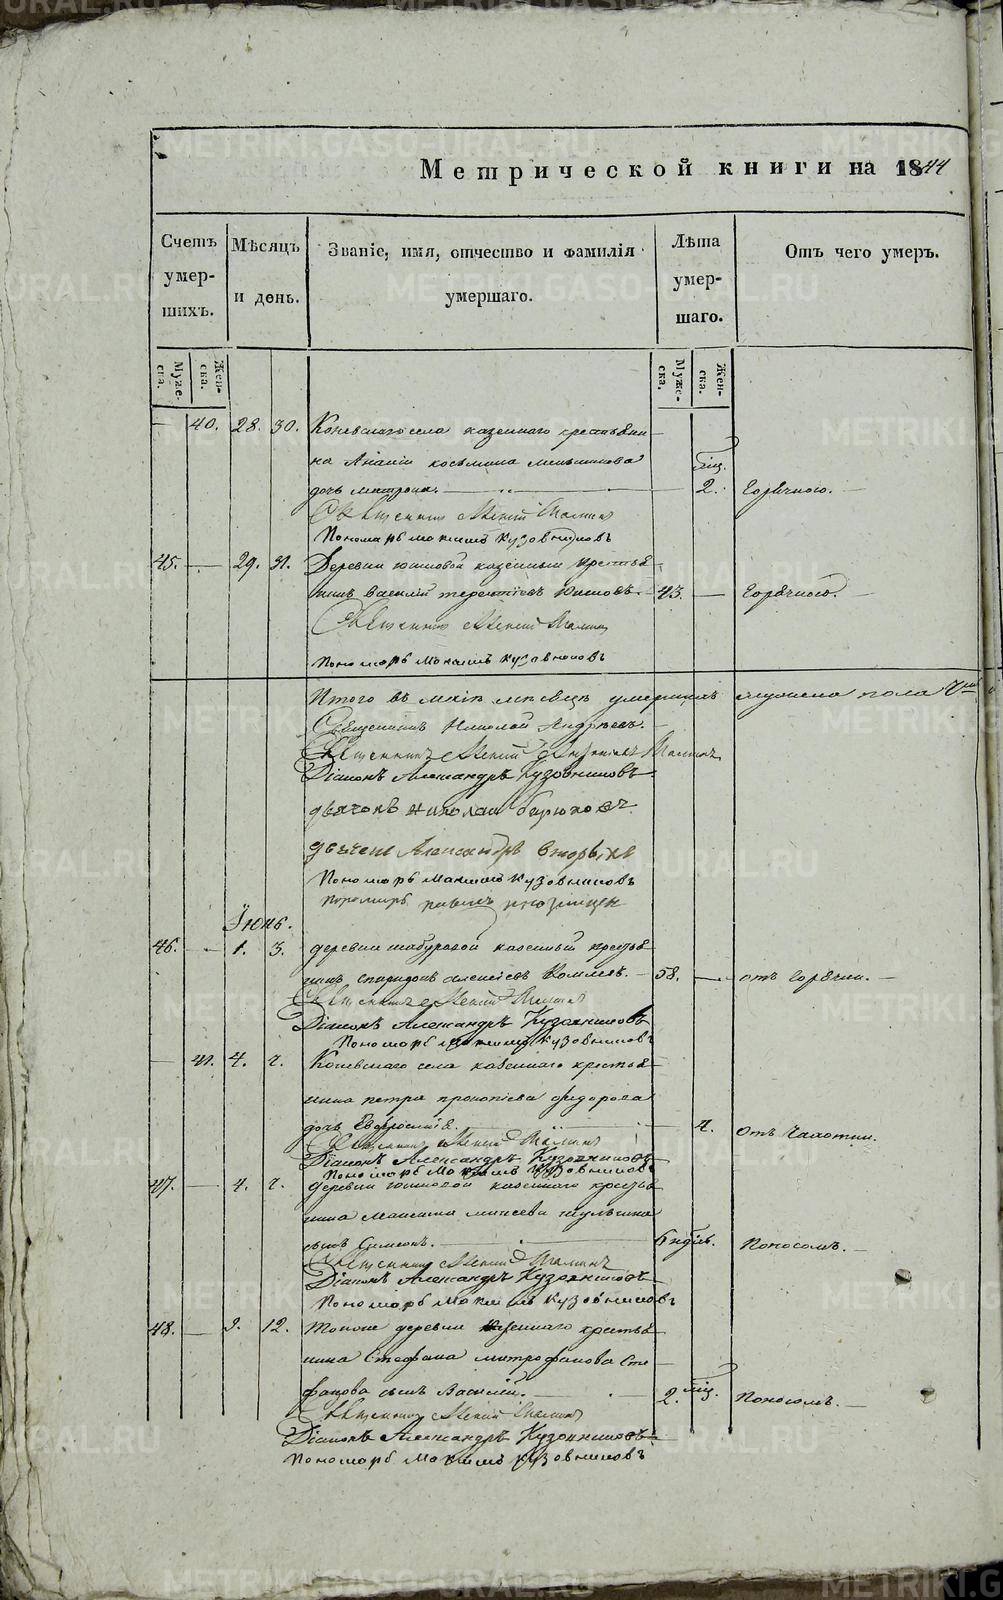 Метрической книги на 1844
Счетъ умер-шихъ.
Мѣсяцъ и день.
Званіе, имя, отчество и фамилія умершаго.
Лѣта умер-шаго.
Отъ чего умеръ.
Муже-ска.
Жен-ска.
Муже-ска.
Жен-ска.
— 40. 28. 30. Коневскаго села казеннаго крестьяни-
на Ананіи косьмина мельникова
дочь матрона. — 2. мѣц. Горячкою. —
Священникъ Алексій Малинъ
Пономарь максимъ кузовниковъ
45. — 29. 31. Деревни юшковой казенный крестья-
нинъ василій терентіевъ Юшковъ. — 43. — Горячкою. —
Священникъ Алексій Малинъ
Пономарь Максимъ кузовниковъ
Итого въ маіѣ мѣсяцѣ умершихъ мужеска пола
Священникъ Николай Андреевъ. —
Священникъ Алексій Малинъ
Діаконъ Александръ Кузовниковъ
дьячокъ николай бирюковъ
дьячекъ Александръ вторыхъ
Пономарь Максимъ кузовниковъ
пономарь павелъ
Іюнь.
46. — 1. 3. деревни шабуровой казенный крестья-
нинъ спиридонъ алексіевъ — 58. — отъ горячки. —
Священникъ Алексій Малинъ
Діаконъ Александръ Кузовниковъ
Пономарь максимъ кузовниковъ
— 41. 4. 7. Коневскаго села казеннаго крестья-
нина петра прокопіева федорова
дочь Евфросинія. — отъ чахотки.
Священникъ Алексій Малинъ
Діаконъ Александръ Кузовниковъ
Пономарь Максимъ Кузовниковъ
47. — 4. 7. деревни юшковой казеннаго крестья-
нина Максима
сынъ Симеонъ. — 6 недѣль. Поносомъ. —
Священникъ Алексій Малинъ
Діаконъ Александръ Кузовниковъ
Пономарь Максимъ кузовниковъ
48. — 9. 12. Тоиже деревни казеннаго крестья-
нина Стефана митрофанова Сте-
фанова сынъ Василій. — 2. мѣц. Поносомъ. —
Священникъ Алексій Малинъ
Діаконъ Александръ Кузовниковъ
Пономарь Максимъ кузовниковъ
METRIKI.GASO-URAL.RU